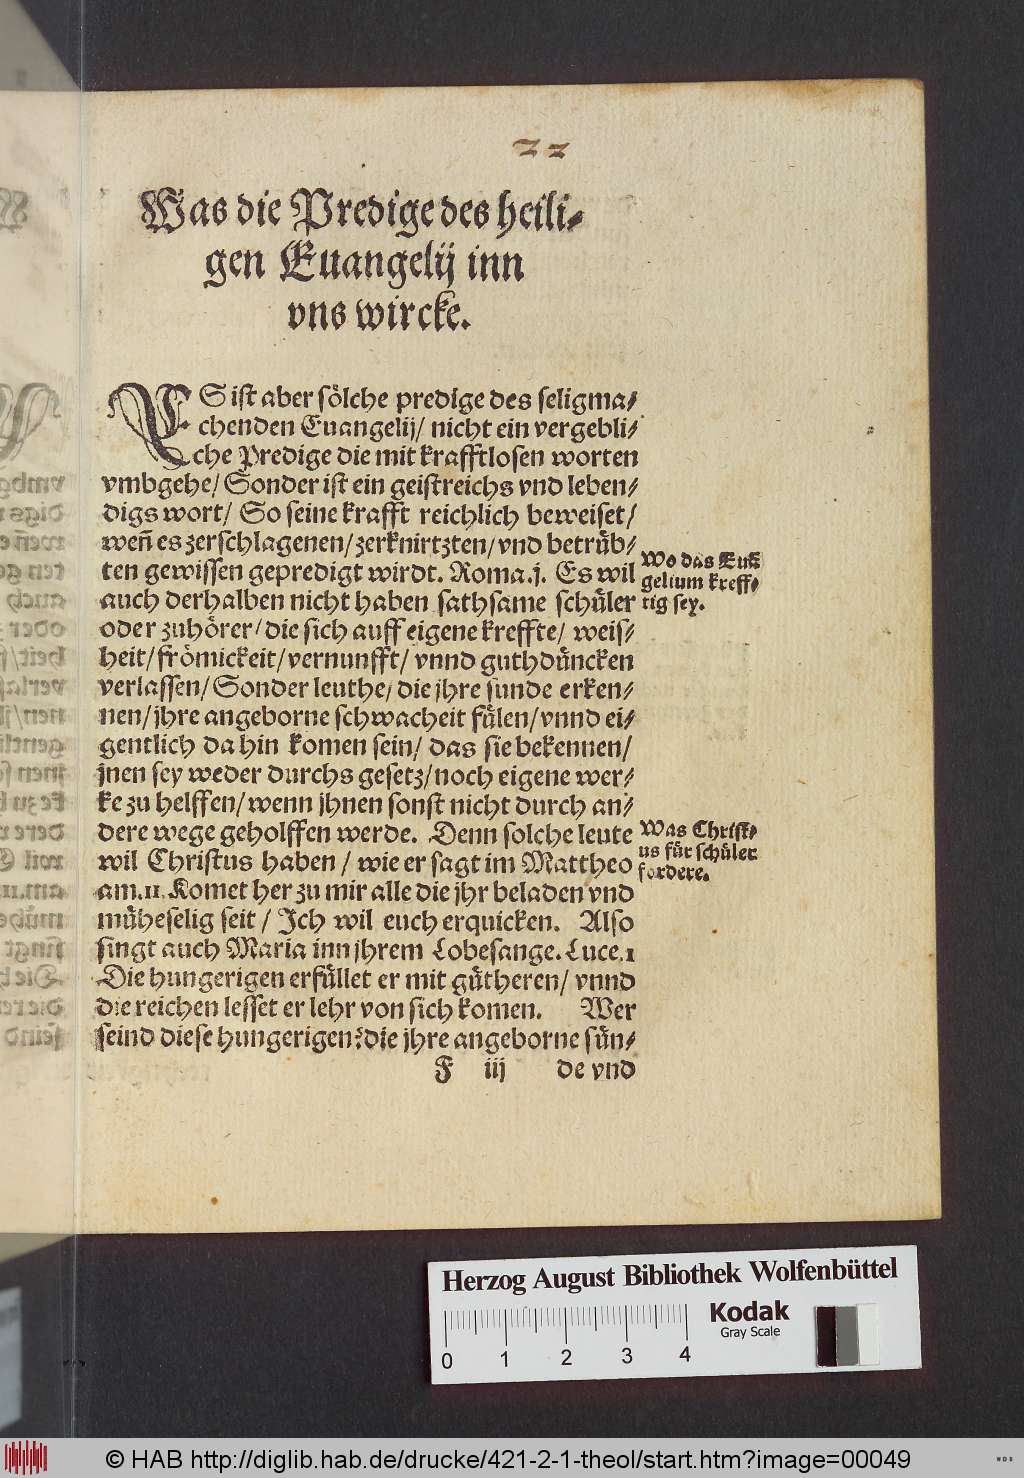 22
Was die Predige des heili-
gen Euangelij inn
vns wircke.
ES ist aber sölche predige des seligma-
chenden Euangelij/ nicht ein vergebli-
che Predige die mit krafftlosen worten
vmbgehe/ Sonder ist ein geistreichs vnd leben-
digs wort/ So seine krafft reichlich beweiset/
weñ es zerschlagenen/ zerknirtzten/ vnd betrüb-
ten gewissen gepredigt wirdt. Roma.j. Es wil
auch derhalben nicht haben sathsame schüler
oder zuhörer/ die sich auff eigene kreffte/ weis-
heit/ frömickeit/ vernunfft/ vnnd guthdüncken
verlassen/ Sonder leuthe/ die jhre sunde erken-
nen/ jhre angeborne schwacheit fülen/ vnnd ei-
gentlich da hin komen sein/ das sie bekennen/
jnen sey weder durchs gesetz/ noch eigene wer-
ke zu helffen/ wenn jhnen sonst nicht durch an-
dere wege geholffen werde. Denn solche leute
wil Christus haben/ wie er sagt im Mattheo
am.11. Komet her zu mir alle die jhr beladen vnd
müheselig seit/ Ich wil euch erquicken. Also
singt auch Maria inn jhrem Lobesange. Luce.1
Die hungerigen erfüllet er mit gütheren/ vnnd
die reichen lesset er lehr von sich komen. Wer
seind diese hungerigen? die jhre angeborne sün-
F iij de vnd
Wo das Euã
gelium kreff-
tig sey.
Was Christ-
us für schüler
fordere.
Herzog August Bibliothek Wolfenbüttel
0 1 2 3 4
Kodak
Gray Scale
© HAB http://diglib.hab.de/drucke/421-2-1-theol/start.htm?image=00049